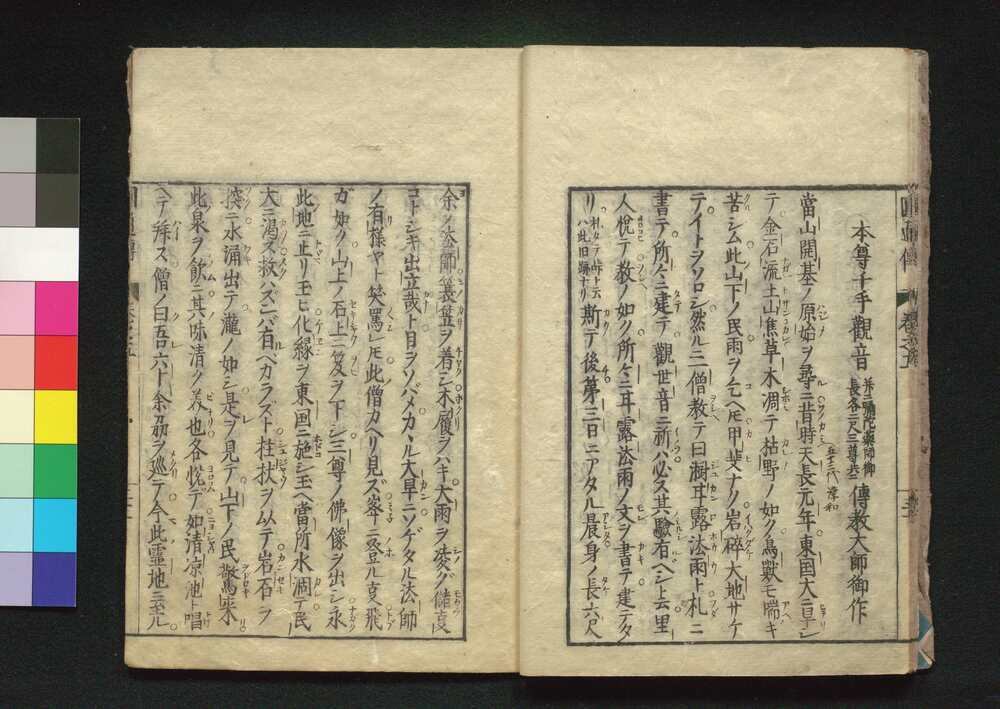 本尊千手觀音 并ニ彌陀薬師御長各二尺三尊共ニ 傳教大師御作
當山開基ノ原始ヲ尋ニ昔時天長元年東国大ニ旱シ
テ金石流土山焦草木凋テ枯野ノ如ク鳥獸モ喘キ
苦シム此山下ノ民雨ヲ乞ヘ𪜈甲斐ナク岩碎大地サケ
テイトヲソロシ然ルニ一僧教テ曰澍耳露法雨ト札ニ
書テ所々ニ建テ觀世音ニ祈ハ必ス其驗有ベシト云里
人悦テ教ノ如ク所々ニ耳露法雨ノ文ヲ書テ建テタ
リ 斯テ後第三日ニアタル晨身ノ長六尺
余ノ法師簔笠ヲ着シ木履ヲハキ大雨ヲ凌グ儲夏
コト〳〵シキ出立哉ト目ヲソバメカヽル大旱ニソゲタル法師
ノ有樣ヤト笑罵レ𪜈此僧カヘリ見ズ峯ニ登ル夏飛
ガ如ク山上ノ石上ニ笈ヲ下シ三尊ノ佛像ヲ出シ永
此地ニ止リ玉ヒ化縁ヲ東国ニ施シ玉ヘ當所水凋テ民
大ニ渇ス救ハズンバ有ベカラズト柱杖ヲ以テ岩石ヲ
揬ニ水涌出テ瀧ノ如シ是ヲ見テ山下ノ民驚来リ
此泉ヲ飲ニ其味清ク美也各悦デ如清凉池ト唱
ヘテ拜ス僧ノ曰吾六十余刕ヲ巡テ今此霊地ニ至ル